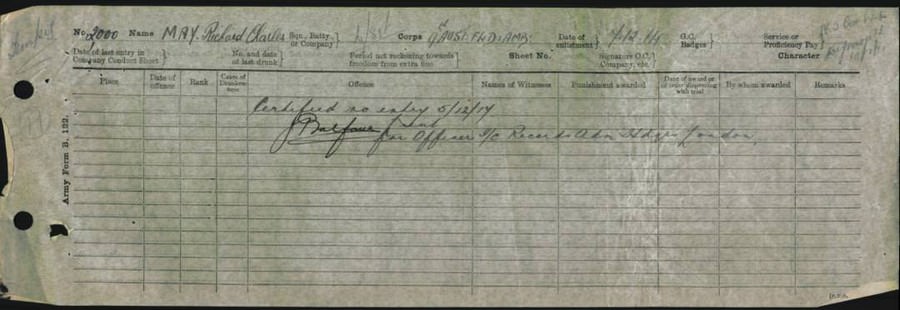 No. 2000 Name MAY. Richard Charles Sqn., Batty., or Company} L/Sł Corps AUST: FLD: AMB: Date of enlistment} 7/12/14 G.C. Badges} Service or Proficiency Pay}
Date of last entry in Company Conduct Sheet} No. and date of last drunk} Period not reckoning towards freedom from extra fine} Sheet No. Signature O.C. Company, etc.} Character
Place Date of offence Rank Cases of Drunkenness Offence Names of Witnesses Punishment awarded Date of award or of order dispensing with trial By whom awarded Remarks
Certified no entry 5/12/17
J Balfour Lieut
for Officer I/C Records Adm Hdqrs London
Army Form B. 122.